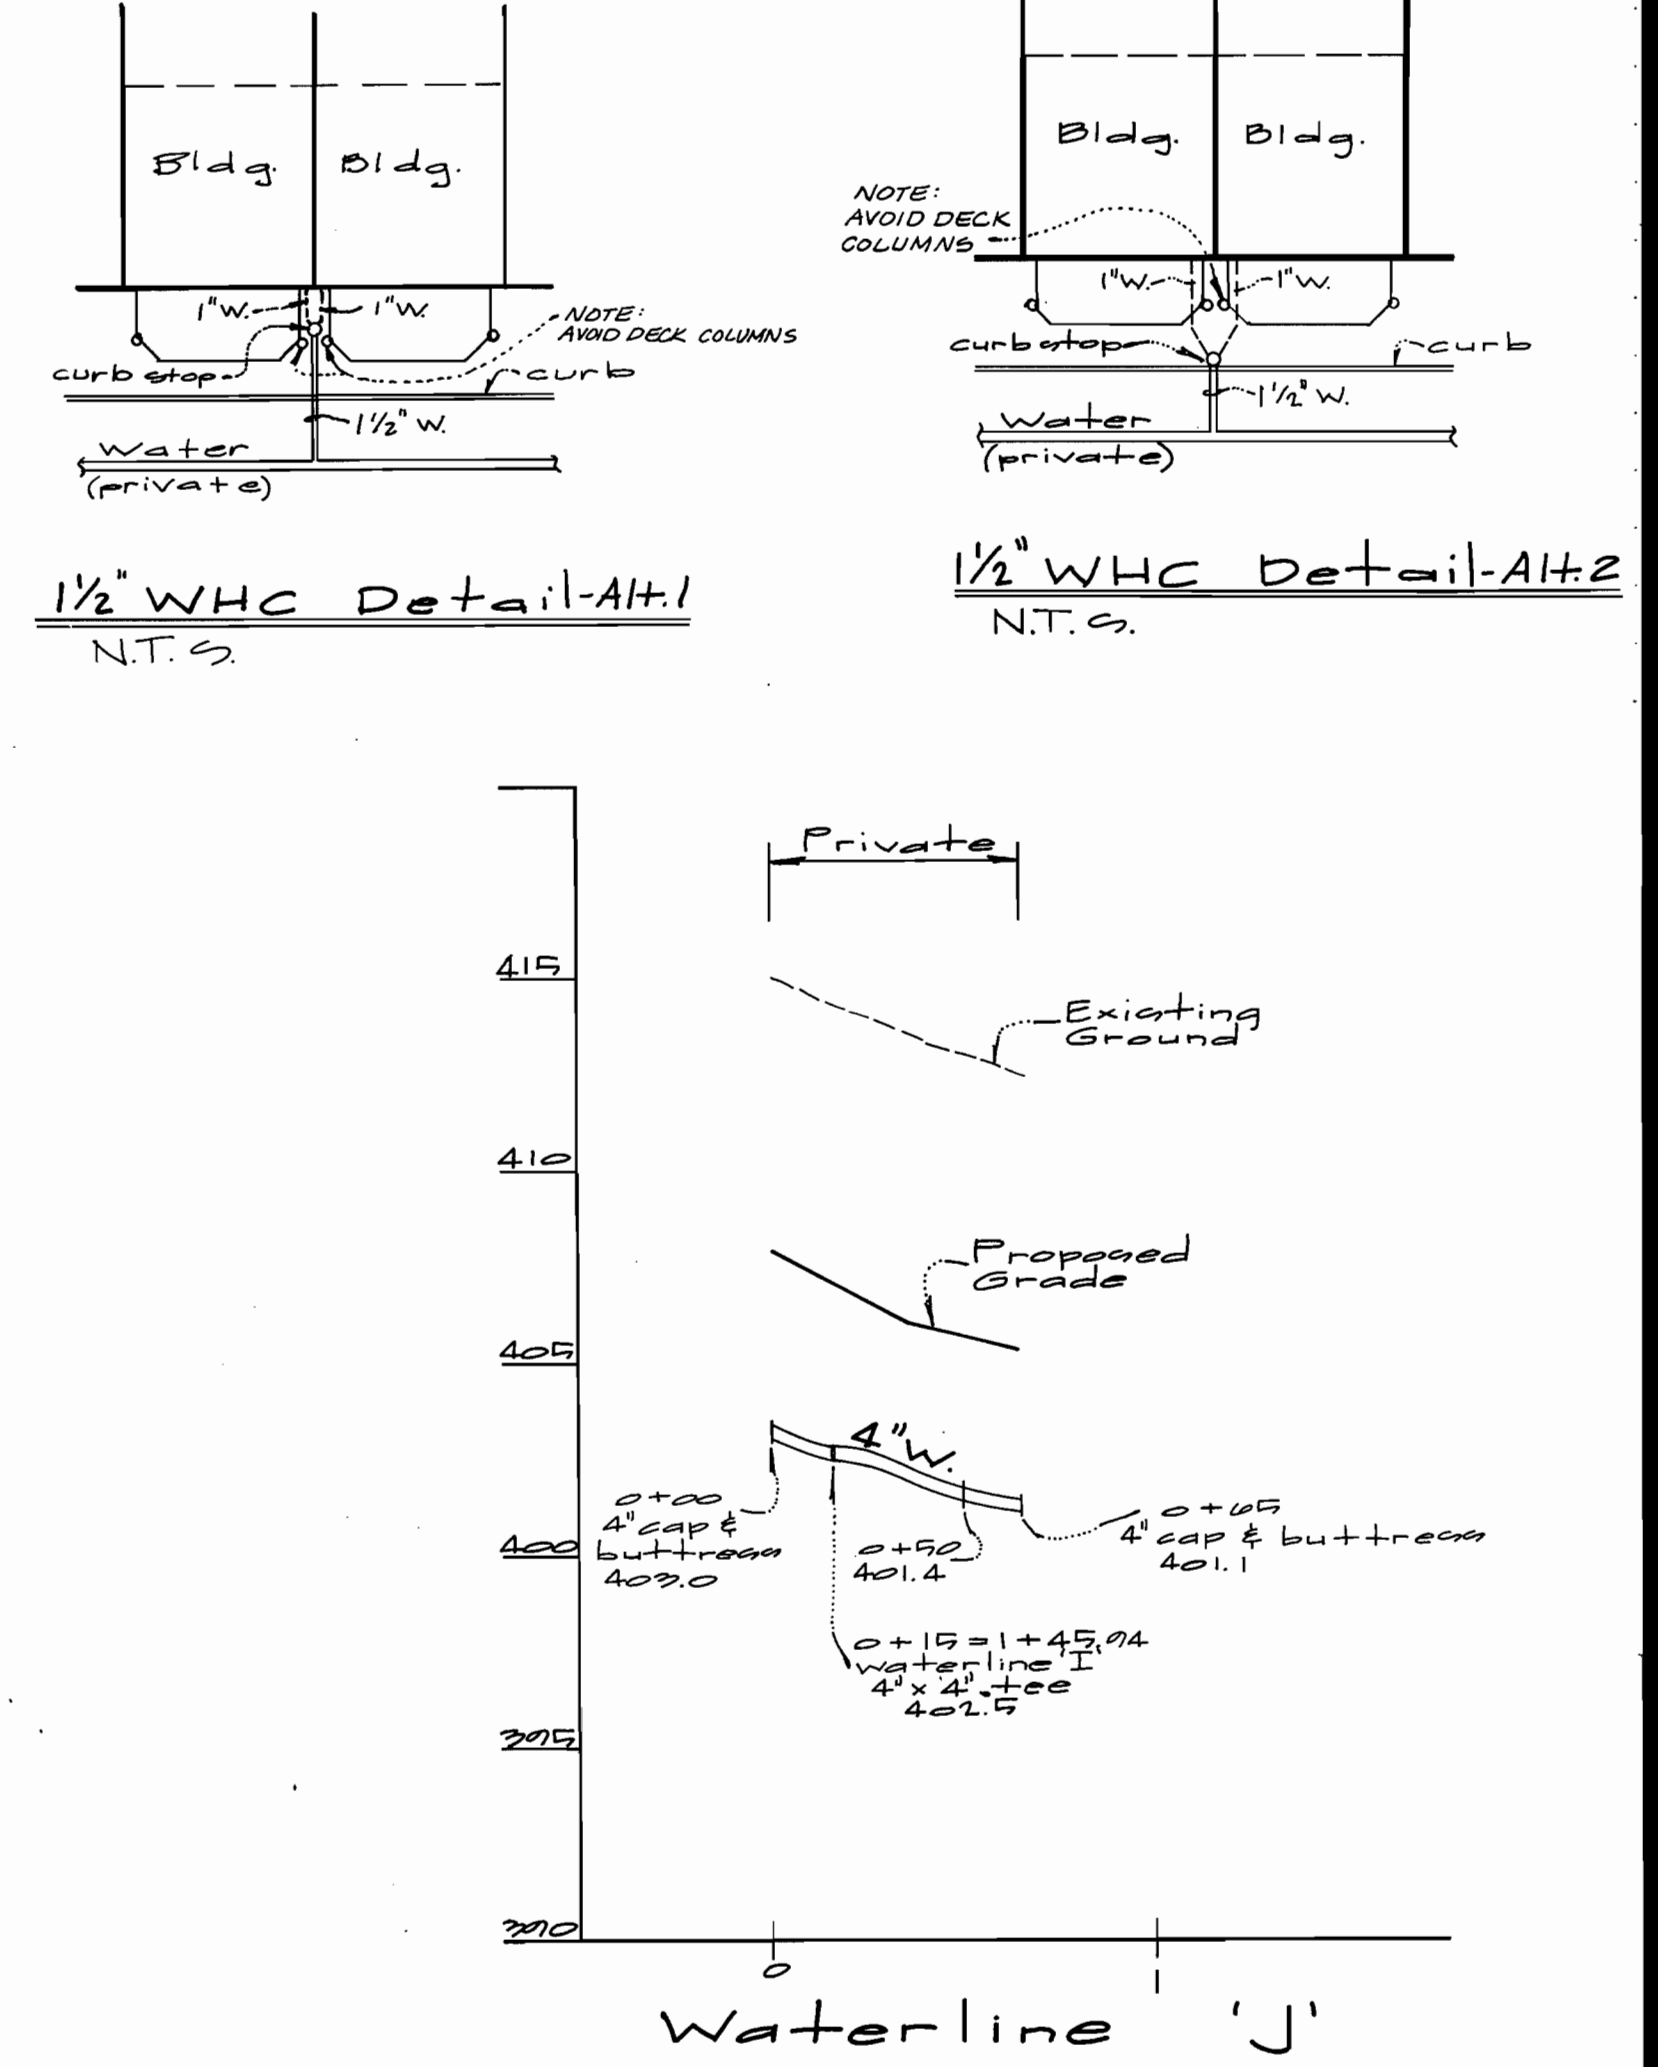 Bldg.
Bldg.
1"W.
1"W.
NOTE:
AVOID DECK COLUMNS
curb stop
curb
1½" W.
Water
(private)
1½" WHC Detail-Alt.1
N.T.S.
Bldg.
Bldg.
NOTE:
AVOID DECK
COLUMNS
1"W.
1"W.
curb stop
curb
1½" W.
Water
(private)
1½" WHC Detail-Alt.2
N.T.S.
Private
415
Existing
Ground
410
Proposed
Grade
405
4"W.
0+00
4" cap &
buttress
403.0
400
0+50
401.4
0+65
4" cap & buttress
401.1
0+15=1+45.94
waterline 'I'
4"x 4" tee
402.5
395
390
0
1
Waterline 'J'